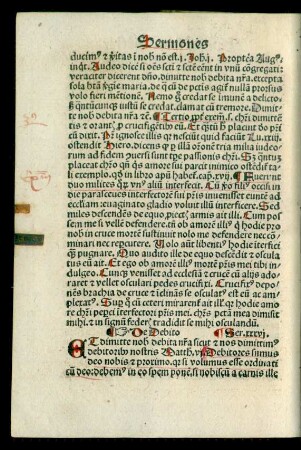 Sermones
ducimꝰ ⁊ v̄itas ī nob̄ nō est. j. Joh. j. Propterea Augꝰ
inq̄t. Audeo dicē si oēs scti ⁊ sctē eēnt in vnū cōgregati
veraciter dicerent dn̄o. dimitte nob̄ debita nr̄a. excepta
sola btā v̄gīe maria. de q̄ cū de pctis agit nullā prorsus
volo fieri mētionē. Nemo ḡ credat se īmunē a delicto.
ꝫ q̄ntūcunqꝫ iustꝰ se credat. clamat cū tremore. Dimit-
te nob̄ debita nr̄a ⁊c̄. Tertio ꝓpt̄ exem. s. chr̄i dimittē
tis ⁊ orant. ꝓ crucifigētibꝰ eū. Et q̄tū h̄ placuit deo pr̄i
cū dixit. Pr̄ ignosce illis qꝛ nesciūt quid faciūt Lu. xxiij.
ostendit Hiero. dicens qꝫ ꝓ illa orōne tria milia iudeo-
rum ad fidem ꝯuersi sunt tpe passionis chr̄i. Sꝫ q̄ntuꝫ
placeat chr̄o qn̄ qs̄ amore sui parcit inimico ostēdit ta-
li exemplo. qd̄ in libro apū habet cap. xvij. Fuerunt
duo milites qꝝ vnꝰ aliū interfecit. Cū ꝟo filiꝰ occisi in
die parasceues interfectorē sui pr̄is inuenisset eunte ad
ecclesiam: euaginato gladio voluit illū interficere. Sed
miles descēdēs de equo. piecit. armis ait illi. Cum pos-
sem me a te vel defendere. eū ob amorē illiꝰ q̄ hodie pro
nob̄ in cruce mortē sustinuit nolo me defendere nec cō-
minari nec reꝑcutere. Uolo aūt libenti hodie iterfici
q̄ꝫ pugnare. Quo audito ille de equo descēdit ⁊ oscula
tus eū ait. Et ego ob amorē illiꝰ mortē pr̄is mei tibi in-
dulgeo. Cumqꝫ venisset ad ecclesiā ⁊ crucē cū alijs ado-
raret ⁊ vellet osculari pedes crucifixi. Crucifixꝰ depo-
nens brachia de cruce ⁊ inclinās se osculatꝰ est eū ac am-
plexatꝰ. Suꝑ q̄ cū ceteri mirarent ait illꝭ. qꝛ hodie amo
re chr̄i peꝑci īterfectori pr̄is mei. chr̄s pctā mea dimisit
mihi. ⁊ in signū federꝭ tradidit se mihi osculandū.
De Debito Ser. xxxvj.
Et dimitte nob̄ debita nr̄a sicut ⁊ nos dimittimꝰ
debitoribꝰ nostris Matth. vj. Debitores sumus
deo nobis ⁊ proximo. qꝛ si volumus esse ordinati
cū deo: debemꝰ in eo spem pone. si nobiscū a carnis ille